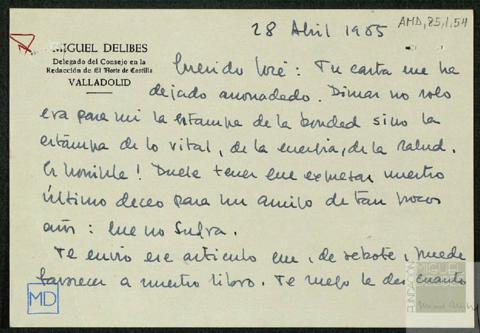 28 Abril 1985
AMD,85,1,54
MIGUEL DELIBES
Delegado del Consejo en la
Redacción de El Norte de Castilla
VALLADOLID
Querido José: Tu carta me ha
dejado anonadado. Dimar no solo
era para mí la estampa de la bondad sino la
estampa de lo vital, de la energía, de la salud.
Es horrible! Duele tener que expresar nuestro
último deseo para un amigo de tan pocos
años: que no sufra.
Te envío ese artículo que, de rebote, puede
favorecer a nuestro libro. Te ruego le des cuanto
MD
FUNDACIÓN
MIGUEL